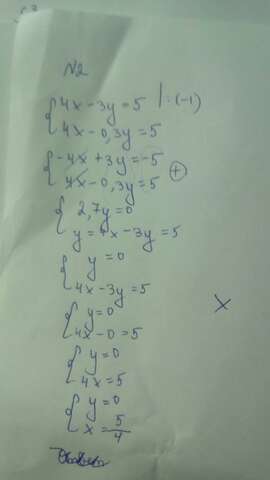 N2
{4x-3y=5 |:(-1)
{4x-0,3y=5
{-4x+3y=-5
{4x-0,3y=5 (+)
{2,7y=0
{y=4x-3y=5
{y=0
{4x-3y=5
{y=0
{4x-0=5
{y=0
{4x=5
{y=0
{x=5/4